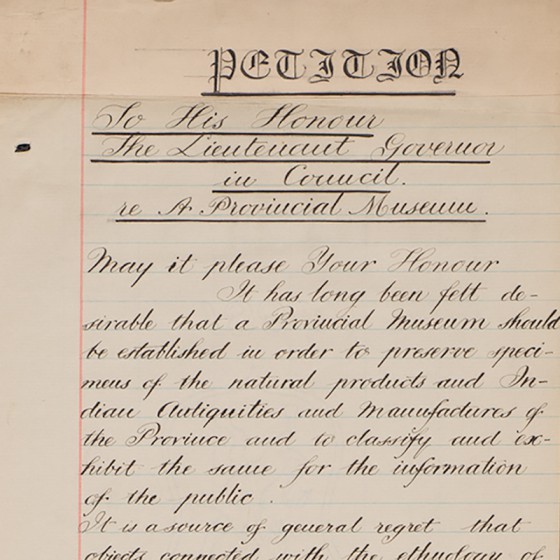 PETITION
To His Honour
The Lieutenant Governor
in Council.
re A Provincial Museum.
May it please Your Honour
It has long been felt de-
sirable that a Provincial Museum should
be established in order to preserve speci-
mens of the natural products and In-
dian Antiquities and Manufactures of
the Province and to classify and ex-
hibit the same for the information
of the public.
It is a source of general regret that
objects connected with the ethnology of